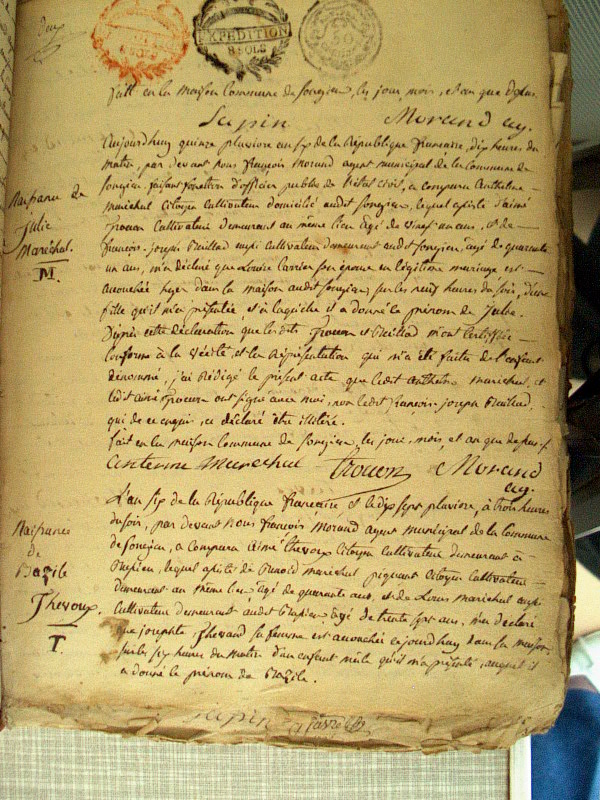 EXPEDITION
8 SOLS
fait en la maison Commune de Songieu, les jour, mois, et an que dessus.
Sapin Morand ag.
Aujourdhuy quinze pluviose an six de la République française, dix heures du
matin, par devant nous françois Morand agent municipal de la Commune de
Songieu, faisant fonction d'officier public de l'état civil, a comparu Anthelme
Maréchal Citoyen Cultivateur domicilié audit Songieu, lequel assisté d'aimé
trocon Cultivateur demeurant au même lieu agé de vingt un ans, et de
françois-joseph aussi Cultivateur demeurant audit Songieu, agé de quarante
un ans, m'a déclaré que Louise Carrier son épouse en légitime mariage est
accouchée hyer dans la maison audit Songieu, sur les neuf heures du soir, d'une
fille qu'il m'a présentée et à laquelle il a donné le prénom de Julie.
D'après cette déclaration que lesdits trocon et m'ont certifiée
conforme à la vérité, et la Représentation qui m'a été faite de l'enfant
dénommé, j'ai Rédigé le présent acte que ledit anthelme maréchal, et
ledit aimé trocon ont signé avec moi, non ledit françois-joseph
qui de ce requis, a déclaré être illitéré.
fait en la maison Commune de Songieu, les jour, mois, et an que dessus
anterme marechal trocon Morand
ag.
Naissance de
Julie
Maréchal.
M.
L'an six de la République française et le dix sept pluviose, à trois heures
du soir, par devant nous françois Morand agent municipal de la Commune
de Songieu, a comparu Aimé Thevoux Citoyen Cultivateur demeurant à
lequel assisté de Benoid maréchal Citoyen Cultivateur
demeurant au même lieu agé de quarante ans, et de Louis maréchal aussi
Cultivateur demeurant audit agé de trente sept ans, m'a déclaré
que josephte Thevand sa femme est accouchée cejourdhuy dans la maison,
sur les six heures du matin d'un enfant mâle qu'il m'a présenté, auquel il
a donné le prénom de Bazile.
Naissance
de
Bazile
Thevoux.
T.
Sapin